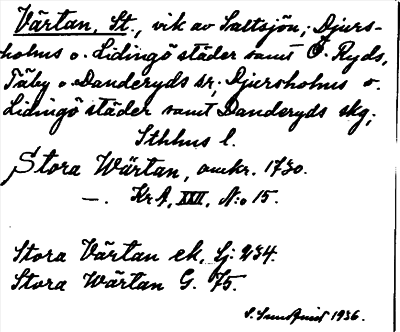 Värtan, St., vik av Saltsjön; Djurs-
holms o. Lidingö städer samt Ö. Ryds,
Täby o. Danderyds sr; Djursholms o.
Lidingö städer samt Danderyds skg;
Sthlms l.
Stora Wärtan, omkr. 1730.
—. Kr A, XXII, N:o 15.
Stora Värtan ek. Lj: 234.
Stora Wärtan G. 75.
1936.